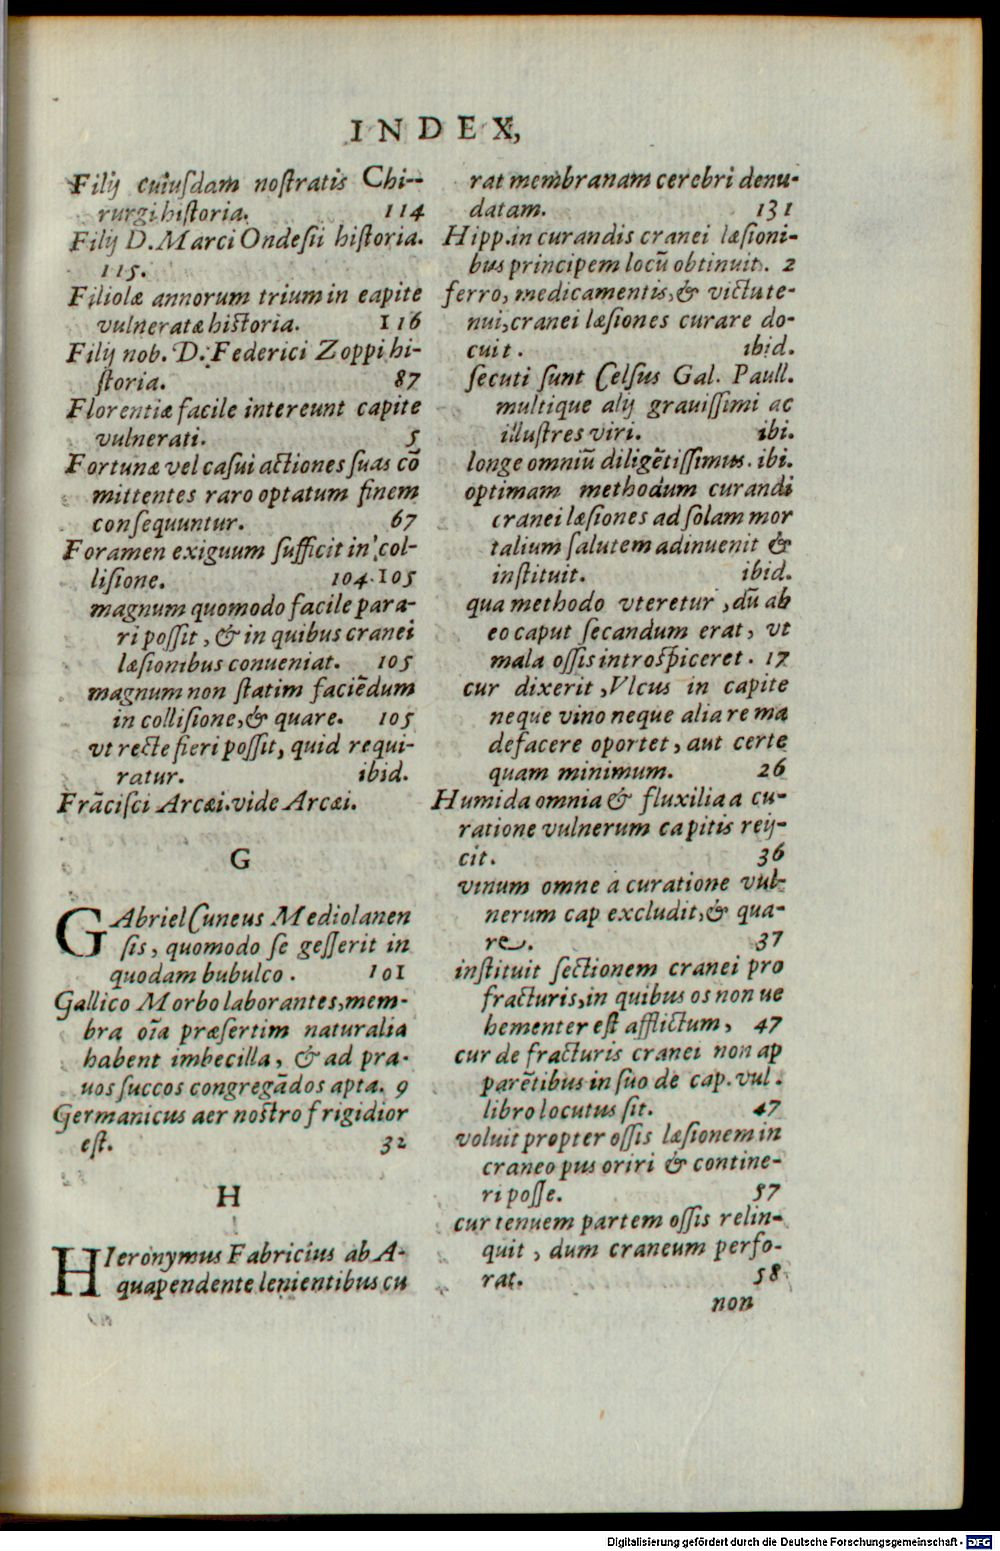 INDEX,
Filij cuiuſdam noſtratis Chi--
rurgi hiſtoria. 114
Filij D. Marci Ondeſii hiſtoria.
115.
Filiolæ annorum trium in eapite
vulneratæ hiſtoria. 116
Filij nob. D. Federici Zoppi hi-
ſtoria. 87
Florentiæ facile intereunt capite
vulnerati. 5
Fortunæ vel caſui actiones ſuas cō
mittentes raro optatum finem
conſequuntur. 67
Foramen exiguum ſufficit in col-
liſione. 104.105
magnum quomodo facile para-
ri poſſit, & in quibus cranei
læſionibus conueniat. 105
magnum non ſtatim faciēdum
in colliſione, & quare. 105
vt recte fieri poſſit, quid requi-
ratur. ibid.
Frāciſci Arcæi. vide Arcæi.
G
GAbriel Cuneus Mediolanen
ſis, quomodo ſe geſſerit in
quodam bubulco. 101
Gallico Morbo laborantes, mem-
bra oīa præſertim naturalia
habent imbecilla, & ad pra-
uos ſuccos congregādos apta. 9
Germanicus aer noſtro frigidior
eſt. 32
H
HIeronymus Fabricius ab A-
quapendente lenientibus cu
rat membranam cerebri denu-
datam. 131
Hipp. in curandis cranei læſioni-
bus principem locū obtinuit. 2
ferro, medicamentis, & victu te-
nui, cranei læſiones curare do-
cuit. ibid.
ſecuti ſunt Celſus Gal. Paull.
multique alij grauiſſimi ac
illuſtres viri. ibi.
longe omniū diligētiſſimus. ibi.
optimam methodum curandi
cranei læſiones ad ſolam mor
talium ſalutem adinuenit &
inſtituit. ibid.
qua methodo vteretur, dū ab
eo caput ſecandum erat, vt
mala oſſis introſpiceret. 17
cur dixerit, Vlcus in capite
neque vino neque alia re ma
defacere oportet, aut certe
quam minimum. 26
Humida omnia & fluxilia a cu-
ratione vulnerum capitis reij-
cit. 36
vinum omne a curatione vul-
nerum cap excludit, & qua-
re. 37
inſtituit ſectionem cranei pro
fracturis, in quibus os non ue
hementer eſt afflictum, 47
cur de fracturis cranei non ap
parētibus in ſuo de cap. vul.
libro locutus ſit. 47
voluit propter oſſis læſionem in
craneo pus oriri & contine-
ri poſſe. 57
cur tenuem partem oſſis relin-
quit, dum craneum perfo-
rat. 58
non
Digitalisierung gefördert durch die Deutsche Forschungsgemeinschaft - DFG